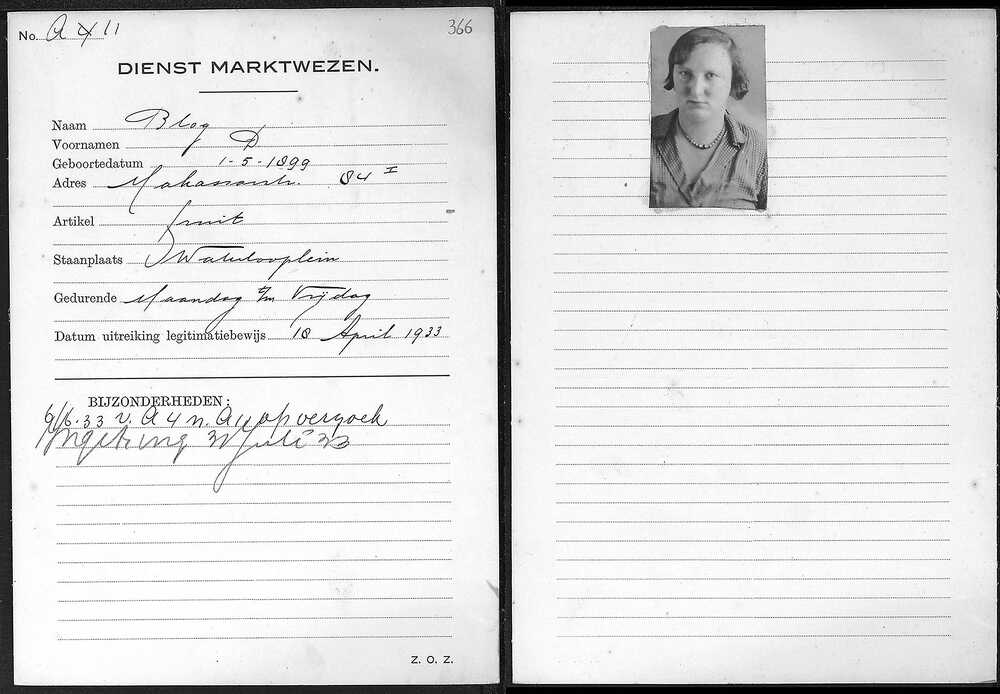 No. A 4 11
366
DIENST MARKTWEZEN.
Naam Blog
Voornamen D
Geboortedatum 1-5-1899
Adres Makassarstr. 84 I
Artikel fruit
Staanplaats Waterlooplein
Gedurende Maandag t/m Vrijdag
Datum uitreiking legitimatiebewijs 18 April 1933
BIJZONDERHEDEN:
6/6.33 v. A 4 n. A 11 op verzoek
Ingetr. 31 Juli 33
Z. O. Z.